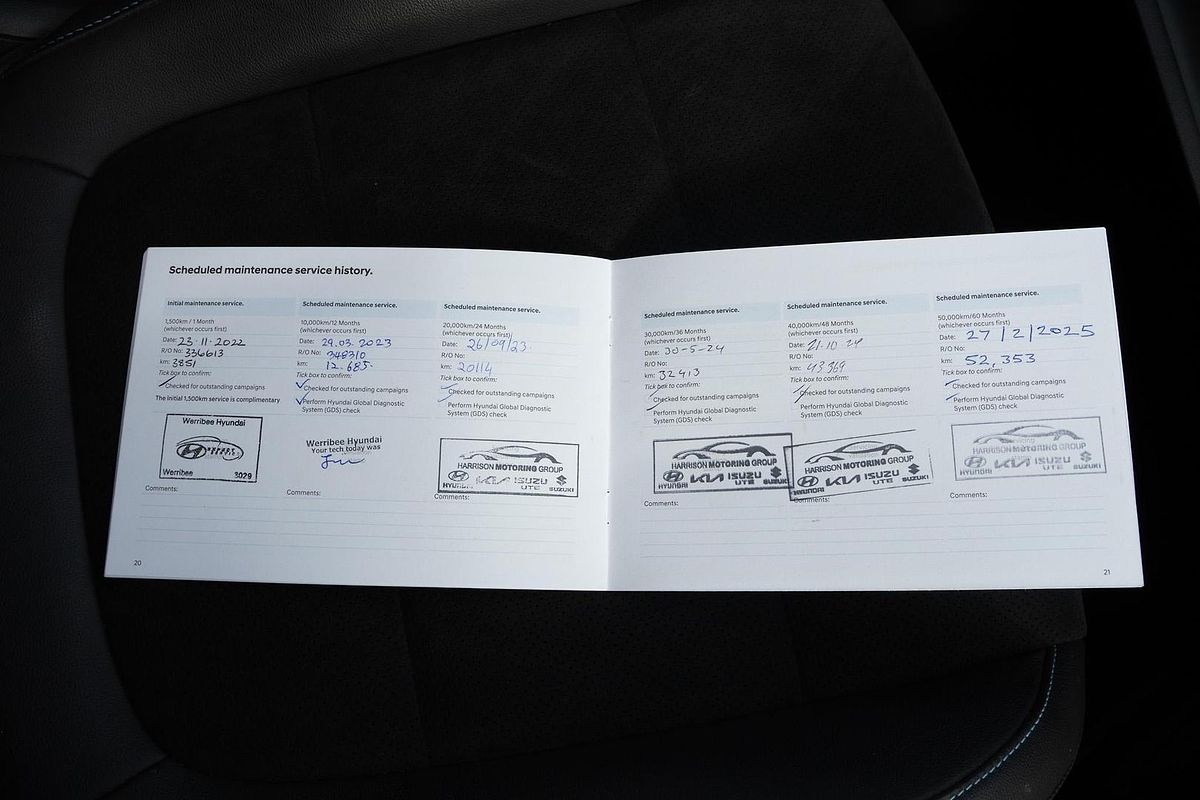 Scheduled maintenance service history.
Initial maintenance service.
1,500km / 1 Month
(whichever occurs first)
Date: 23·11·2022
R/O No: 336613
km: 3851
Tick box to confirm:
Checked for outstanding campaigns
The Initial 1,500km service is complimentary
Werribee Hyundai
Werribee 3029
Comments:
Scheduled maintenance service.
10,000km/12 Months
(whichever occurs first)
Date: 29.03.2023
R/O No: 348310
km: 12.685.
Tick box to confirm:
Checked for outstanding campaigns
Perform Hyundai Global Diagnostic
System (GDS) check
Werribee Hyundai
Your tech today was
Comments:
Scheduled maintenance service.
20,000km/24 Months
(whichever occurs first)
Date: 26/09/23
R/O No:
km: 20114
Tick box to confirm:
Checked for outstanding campaigns
Perform Hyundai Global Diagnostic
System (GDS) check
HARRISON MOTORING GROUP
HYUNDAI KIA ISUZU UTE SUZUKI
Comments:
20
Scheduled maintenance service.
30,000km/36 Months
(whichever occurs first)
Date: 30-5-24
R/O No:
km: 32413
Tick box to confirm:
Checked for outstanding campaigns
Perform Hyundai Global Diagnostic
System (GDS) check
HARRISON MOTORING GROUP
HYUNDAI KIA ISUZU UTE SUZUKI
Comments:
Scheduled maintenance service.
40,000km/48 Months
(whichever occurs first)
Date: 21·10·24
R/O No:
km: 43969
Tick box to confirm:
Checked for outstanding campaigns
Perform Hyundai Global Diagnostic
System (GDS) check
HARRISON MOTORING GROUP
HYUNDAI KIA ISUZU UTE SUZUKI
Comments:
Scheduled maintenance service.
50,000km/60 Months
(whichever occurs first)
Date: 27/2/2025
R/O No:
km: 52,353
Tick box to confirm:
Checked for outstanding campaigns
Perform Hyundai Global Diagnostic
System (GDS) check
HARRISON MOTORING GROUP
HYUNDAI KIA ISUZU UTE SUZUKI
Comments:
21